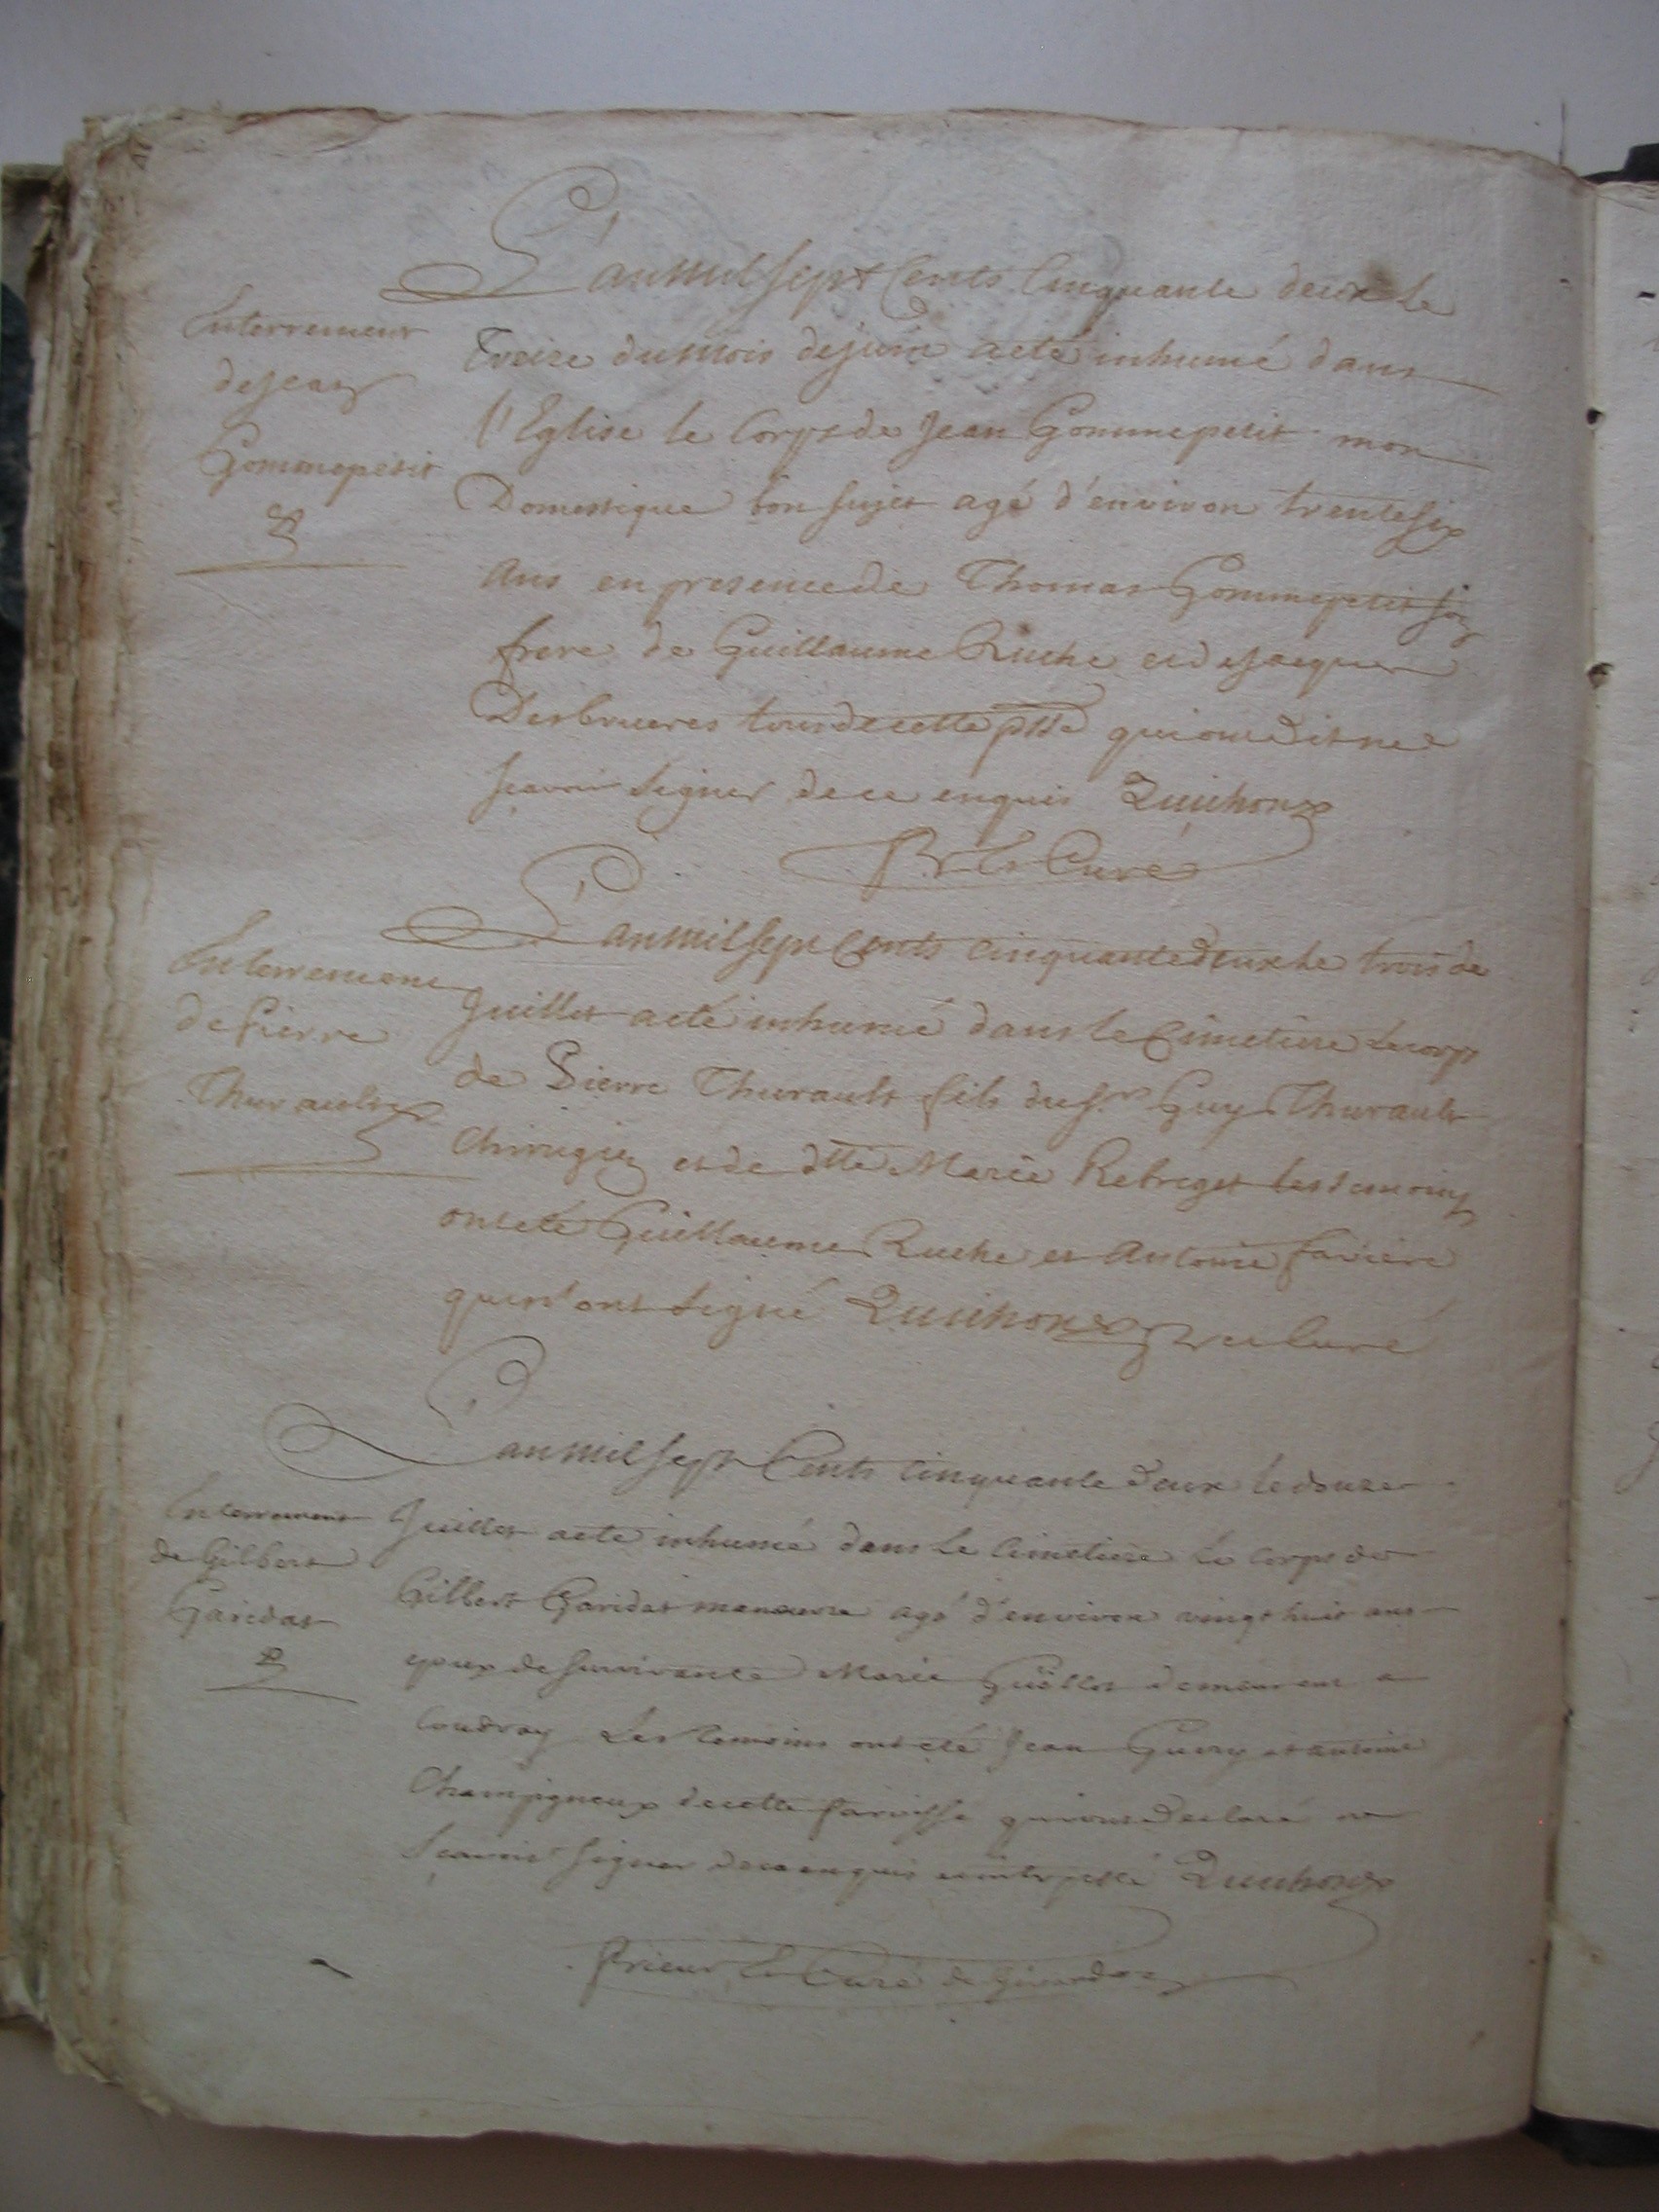 L'an mil sept Cents Cinquante deux le
Enterrement
de jean
Gommepetit
Treize du mois de juin a eté inhumé dans
l'Eglise le Corps de Jean Gommepetit mon
Domestique bon sujet agé d'environ trente six
Ans en presence de Thomas Gommepetit son
frere de Guillaume Ruche et de jacques
Desbrueres tous de cette psse qui ont dit ne
scavoir signer de ce enquis Quichon
Pr le Curé
L'an mil sept Cents cinquante deux le trois de
Enterrement
de Pierre
Thurault
Juillet a eté inhumé dans le Cimetiere le corps
de Pierre Thurault fils du Sr Guy Thurault
Chirugien et de dlle Marie Rebreget les temoins
ont eté Guillaume Ruche et Antoine favière
qui n'ont signé Quichon Pr le Curé
L'an mil sept Cents cinquante deux le douze
Enterrement
de Gilbert
Garidat
Juillet a eté inhumé dans le Cimetiere le corps de
Gilbert Garidat manœuvre agé d'environ vingt huit ans
epoux de survivante Marie Guëllot demeurant a
Coudray Les temoins ont eté Jean Guery et antoine
Champigneux de cette Paroisse qui ont declaré ne
Scavoir signer de ce enquis Quichon
Prieur le Curé de